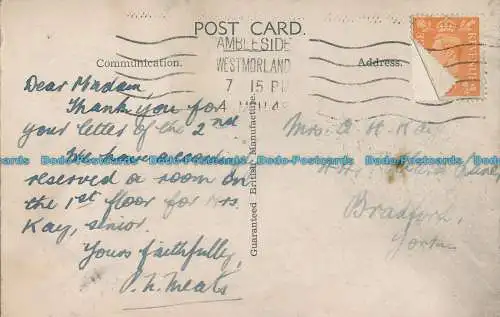 POST CARD.
AMBLESIDE
WESTMORLAND
7 15 PM
Communication.
Address.
Dear Madam,
Thank you for
your letter of the 2nd
We have
reserved a room on
the 1st floor for Mrs.
Kay, senior.
Yours faithfully,
Guaranteed British Manufacture.
Mrs. A. H. Kay
Bradford,
Yorks.
Dodo-Postcards Dodo-Postcards Dodo-Postcards Dodo-Postcards Dodo-Postcards